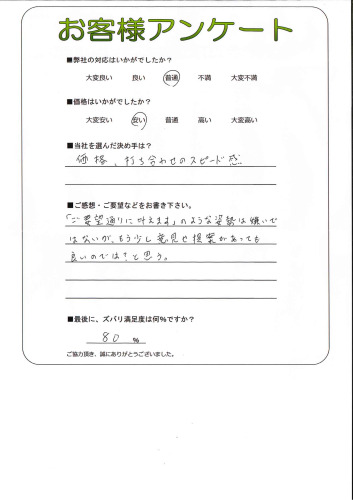 お客様アンケート
■弊社の対応はいかがでしたか？
大変良い 良い 普通 不満 大変不満
■価格はいかがでしたか？
大変安い 安い 普通 高い 大変高い
■当社を選んだ決め手は？
価格、打ち合わせのスピード感
■ご感想・ご要望などをお書き下さい。
「ご要望通りに叶えます」のような姿勢は嫌いで
はないが、もう少し意見や提案があっても
良いのでは？と思う。
■最後に、ズバリ満足度は何%ですか？
80 %
ご協力頂き、誠にありがとうございました。